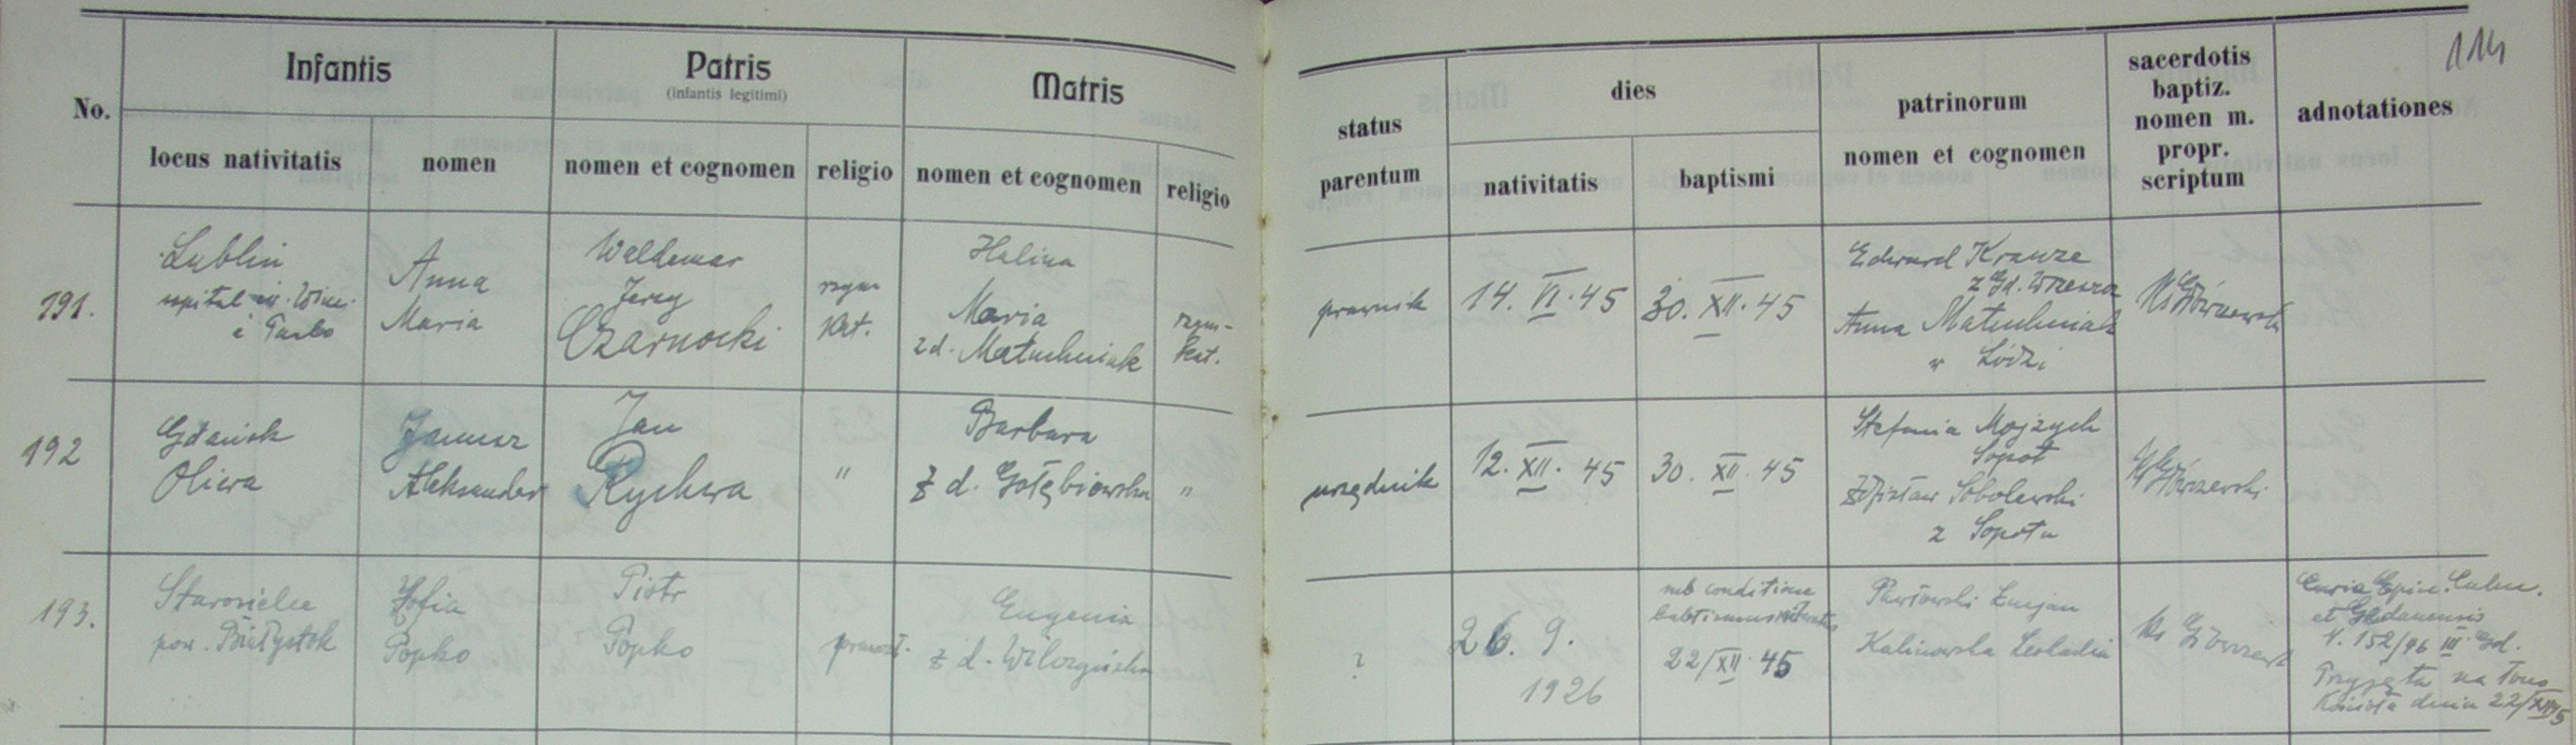 114
No.
Infantis
Patris
(infantis legitimi)
Matris
status
parentum
dies
patrinorum
nomen et cognomen
sacerdotis
baptiz.
nomen m.
propr.
scriptum
adnotationes
locus nativitatis
nomen
nomen et cognomen
religio
nomen et cognomen
religio
nativitatis
baptismi
191.
Lublin
szpital św. Winc.
à Paulo
Anna
Maria
Waldemar
Jerzy
Czarnocki
rzym
kat.
Halina
Maria
z d. Matuchniak
rzym-
kat.
prawnik
14. VI. 45
30. XII. 45
Edward Krauze
z Gd. Wrzeszcz
Anna Matuchniak
w Łódzi
Ks Górzewski
192
Gdańsk
Oliwa
Janusz
Aleksander
Jan
Rychwa
"
Barbara
z d. Gołębiowska
"
urzędnik
12. XII. 45
30. XII. 45
Stefania Mojzych
Sopot
Zdzisław Sobolewski
z Sopotu
Ks Górzewski
193.
Starosielce
pow. Białystok
Zofia
Popko
Piotr
Popko
prawosł.
Eugenia
z d.
?
26. 9.
1926
sub conditione
22/XII 45
Pawłowski Lucjan
Kalinowska Leokadia
ks Górzewski
Curia Epis. Culm.
et Gedanensis
N. 152/46 III Gd.
Przyjęta na łono
Kościoła dnia 22/XII 45